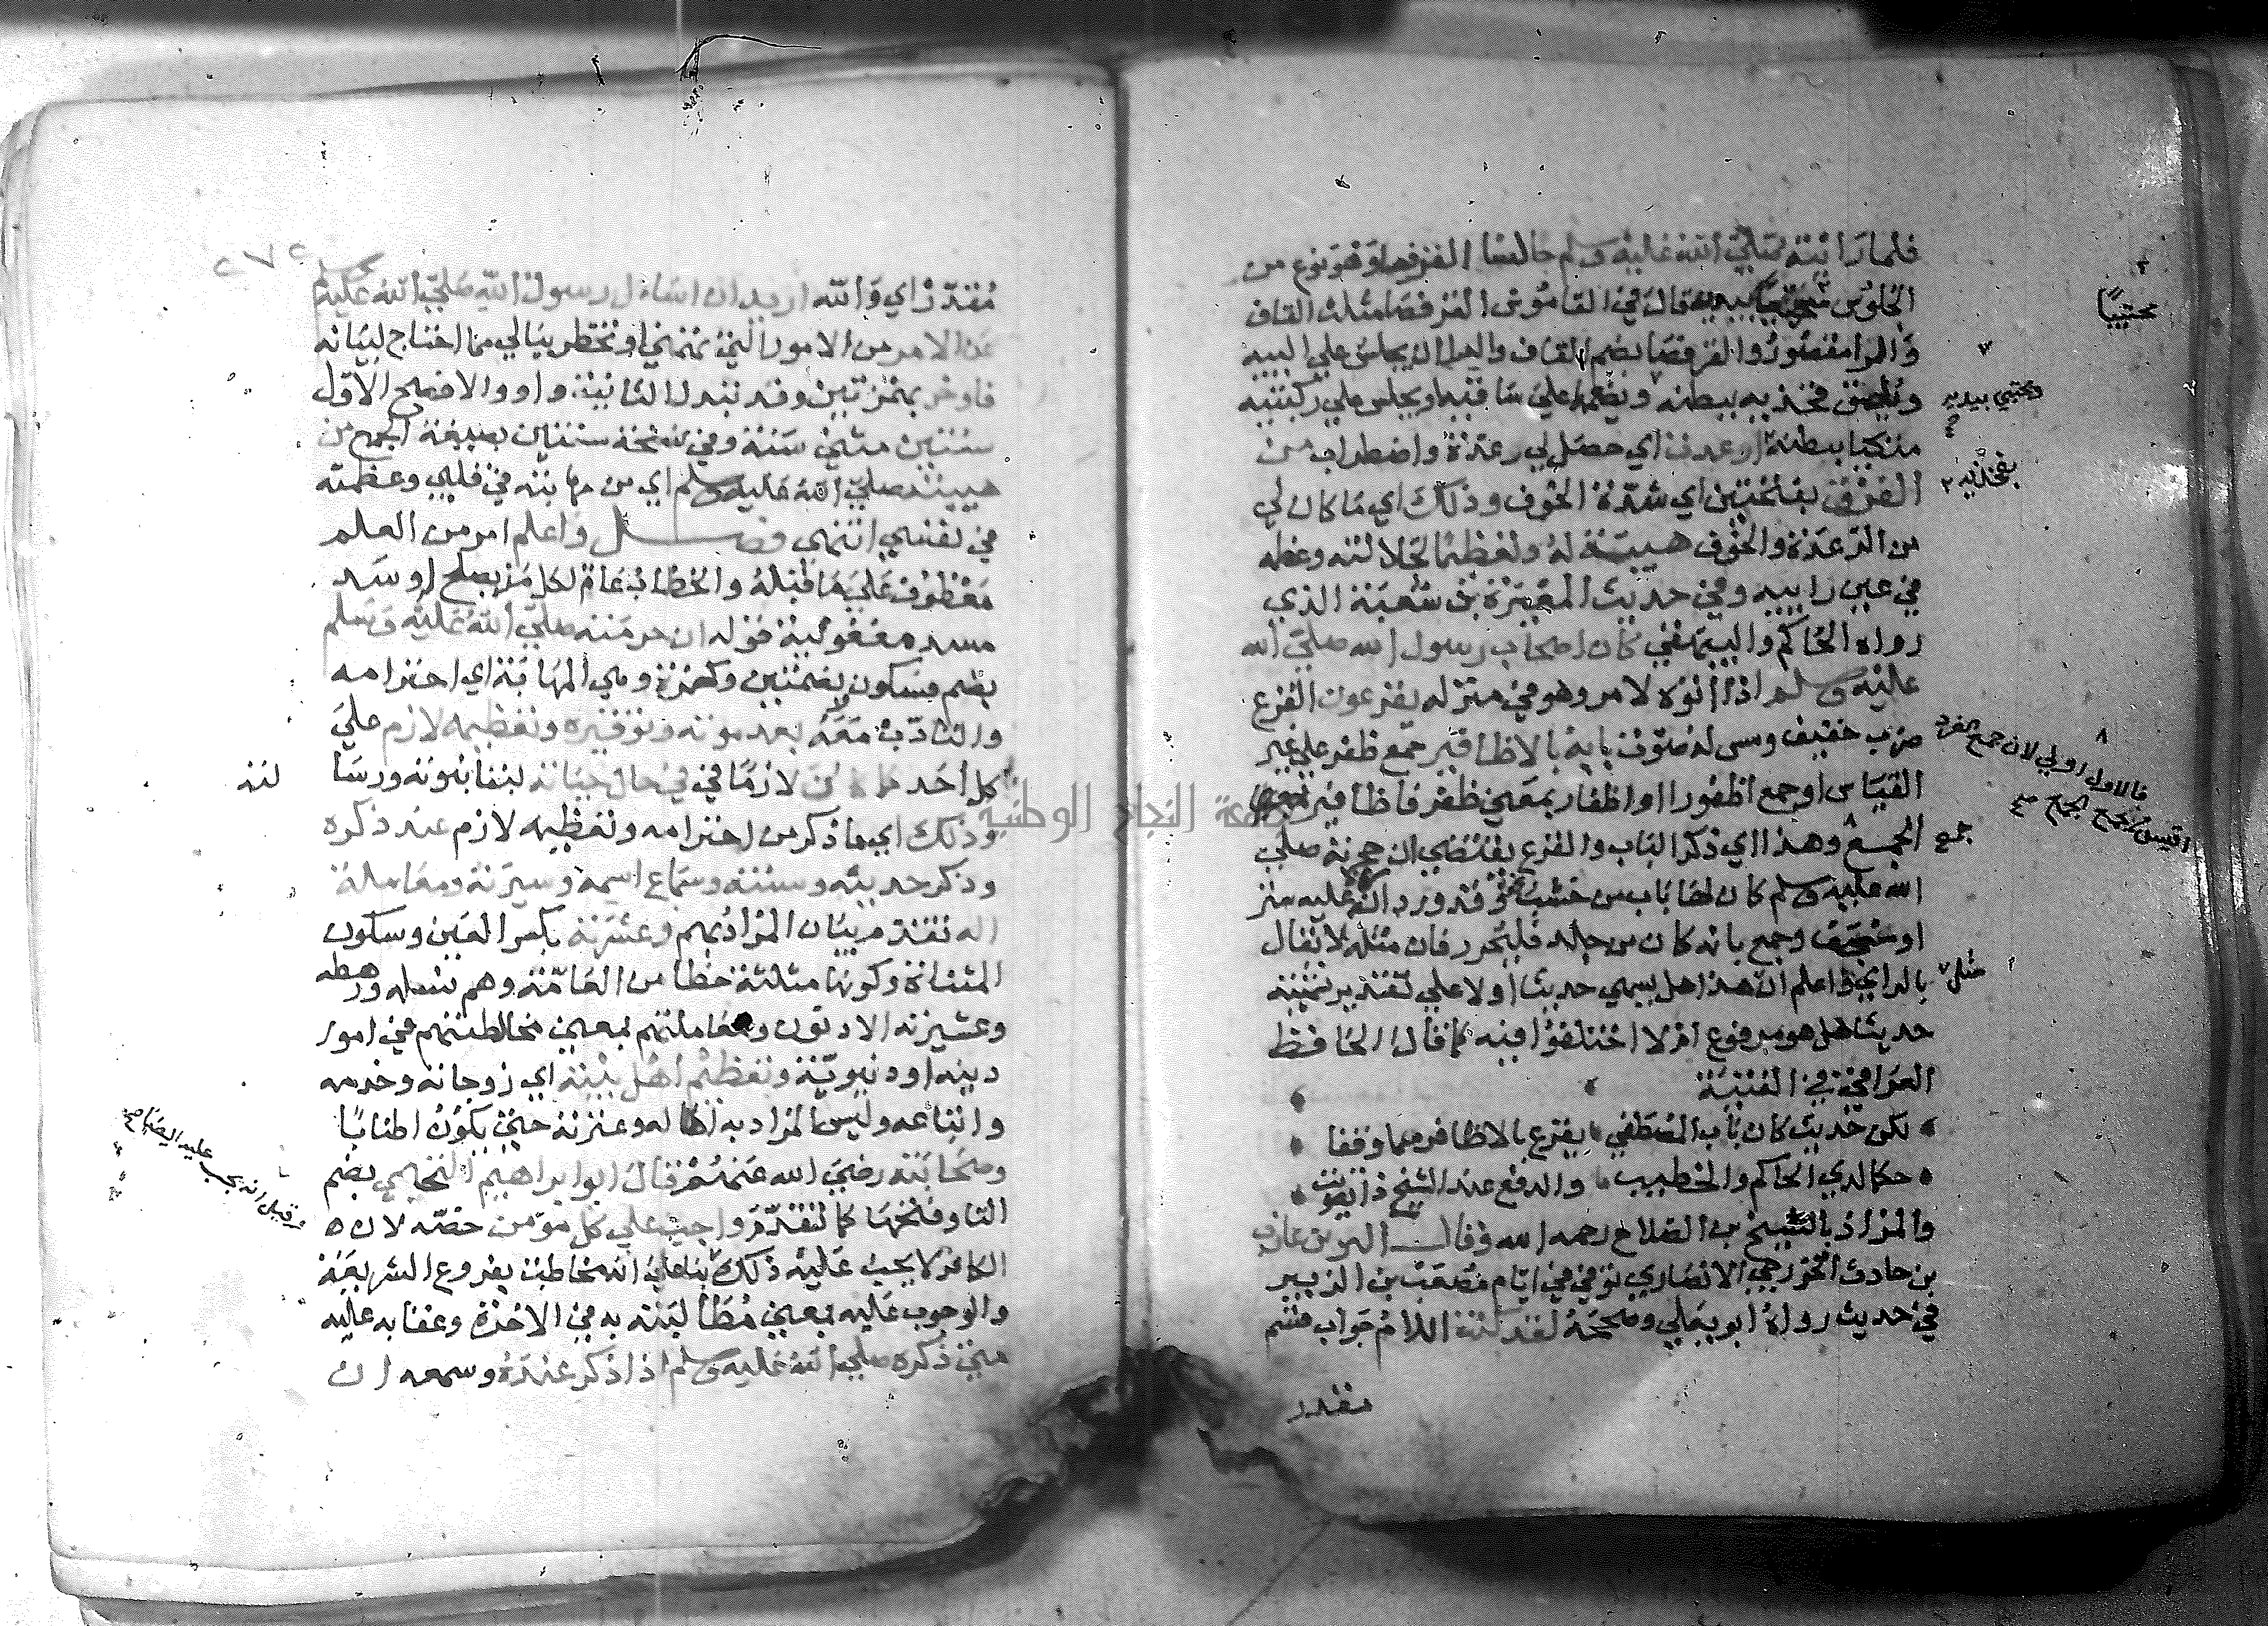 فلما رايته صلى الله عليه وسلم جالسا القرفصا وهو نوع من
الجلوس قال في القاموس القرفصا مثلث القاف
محتبيا
والرا مقصور والقرفصا بضم القاف والرا ان يجلس على اليتيه
ويلصق فخذيه ببطنه على ساقيه او يجلس على ركبتيه
ويحتبي بيديه
متكيا ببطنه ارعدت اي حصل لي رعدة واضطراب من
بفخذيه
الفرق بفتحتين اي شدة الخوف وذلك اي ما كان لي
من الرعدة والخوف هيبة له وتعظيما لجلالته وعظمه
في عين راييه وفي حديث المغيرة بن شعبة الذي
رواه الحاكم والبيهقي كان اصحاب رسول الله صلى الله
عليه وسلم اذا اتوه لامر وهو في منزله يقرعون القرع
ضرب خفيف له صوت بابه بالاظافير جمع ظفر على غير
فالاول اولى لان جمع المفرد
القياس او جمع اظفورا او اظفار بمعنى ظفر فاظافير
اقيس من جمع الجمع
الجمع وهذا اي ذكر الباب والقرع يقتضي ان حجرته صلى
جمع
الله عليه وسلم كان لها باب من خشب وقد ورد انه عليه ستر
او وجمع بانه كان من جلد فليحرر فان مثله لا يقال
بالراي واعلم ان هذا هل يسمى حديثا او لا على تقدير تسميته
مثل
حديثا هل هو مرفوع ام لا اختلفوا فيه كما قال الحافظ
العراقي في الفيته
لكن حديث كان باب المصطفى يقرع بالاظافر مما وقفا
حكما لدى الحاكم والخطيب والرفع عند الشيخ ذو تصويب
والمراد بالشيخ بن الصلاح رحمه الله وقال البر بن عازب
بن حارث الخزرجي الانصاري توفي في ايام مصعب بن الزبير
في حديث رواه ابو يعلى وصححه لقد كنت اللام جواب قسم
مقدر
٢٧٢
مقدر اي والله اريد ان اسال رسول الله صلى الله عليه وسلم
عن الامر من الامور التي تهمني او تخطر ببالي مما احتاج لبيانه
فاوخر بهمزتين وقد تبدل الثانية واوا والافصح الاول
سنتين مثنى سنة وفي نسخة سنين بصيغة الجمع من
هيبته صلى الله عليه وسلم اي من مهابته في قلبي وعظمته
في نفسي انتهى فصل واعلم امر من العلم
معطوف على ما قبله والخطاب عام لكل من يصلح له وسد
مسد مفعوليه قوله ان حرمته صلى الله عليه وسلم
بضم فسكون وبضمتين وكهمزة وهي المهابة اي احترامه
والتادب معه بعد موته وتوقيره وتعظيمه لازم على
كل احد كما كان لازما في حال حياته لبقا نبوته ورسا
لته
وذلك اي ما ذكر من احترامه وتعظيمه لازم عند ذكره
وذكر حديثه وسنته وسماع اسمه وسيرته ومعاملة
اله تقدم بيان المراد بهم وعترته بكسر العين وسكون
المثناة وكونها مثلثة خطا من العامة وهم نسله ورهطه
وعشيرته الادنون ومعاملتهم بمعنى مخالطتهم في امور
دينه او دنيوية وتعظيم اهل بيته اي زوجاته وخدمه
واتباعه وليس المراد به اله وعترته حتى يكون اطنابا
وصحابته رضي الله عنهم قال ابو ابراهيم التجيبي بضم
التا وفتحها كما تقدم واجب على كل مؤمن خصه لان
وقيل انه يجب عليه ايضا صح
الكافر لا يجب عليه ذلك بنا على انه مخاطب بفروع الشريعة
والوجوب عليه بمعنى مطالبته به في الاخرة وعقابه عليه
متى ذكره صلى الله عليه وسلم اذا ذكر عنده وسمعه ان
جامعة النجاح الوطنية